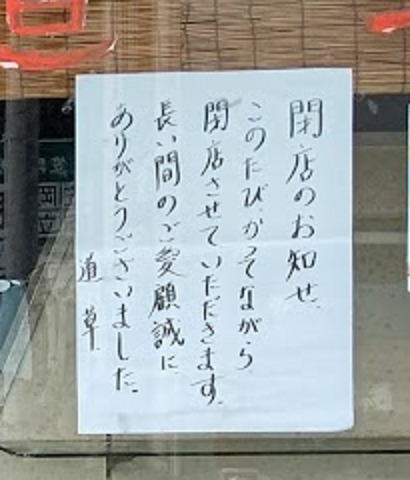 閉店のお知せ、
このたびかってながら
閉店させていただきます。
長い間のご愛顧誠に
ありがとうございました。
道草